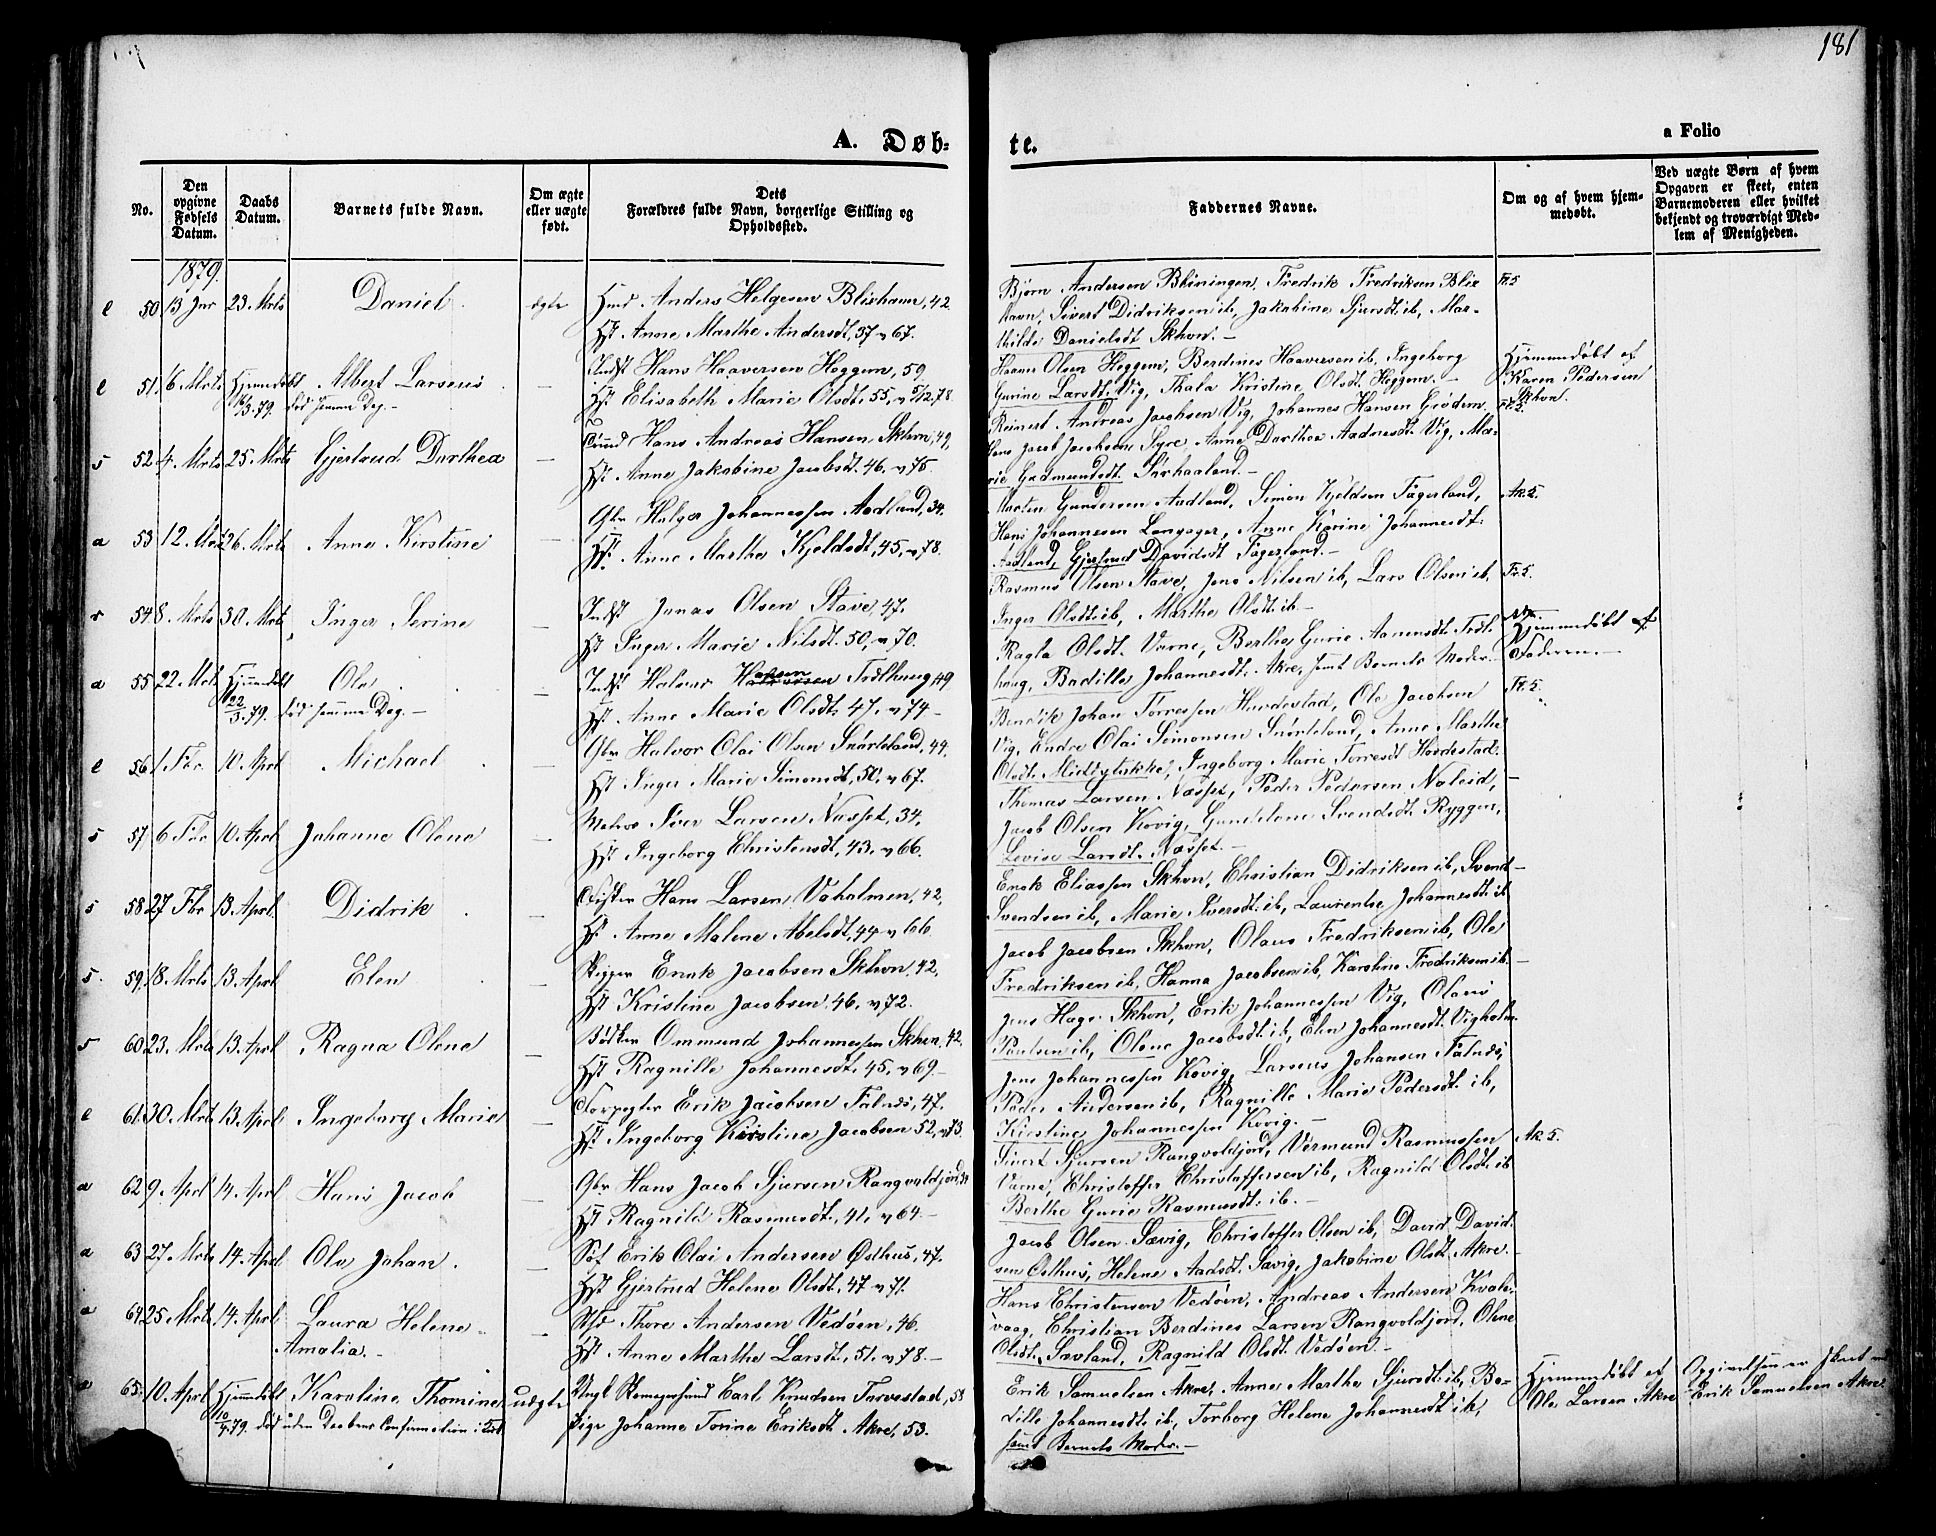 181
A. Døb-
te.
a Folio
No.
Den opgivne Fødsels Datum.
Daabs Datum.
Barnets fulde Navn.
Om ægte eller uægte født.
Dets Forældres fulde Navn, borgerlige Stilling og Opholdssted.
Faddernes Navne.
Om og af hvem hjemmedøbt.
Ved uægte Børn af hvem Opgaven er skeet, enten Barnemoderen eller hvilket bekjendt og troværdigt Medlem af Menigheden.
1879.
50 13 Jnr 23. Mrts Daniel ægte Anders Helgesen 42.
Hst Anne Marthe Andersdt, 37, v 67.
Bjørn Andersen Fredrik Fredriksen
Sivert Didriksen ib, Jakobine Sjursdt ib, Mar-
thilde Danielsdt Skhvn.-
51. 6 Mrts Hjemmedøbt Albert Larsens — Hans Haaversen Heggem, 59
16/3.79. død samme Dag.- Hst Elisabeth Marie Olsdt. 55, v 5/12.78.
Haaver Olsen Heggem, Berdines Haaversen ib, Ingeborg
Gurine Larsdt. Vig, Thala Kristine Olsdt. Heggem.-
Hjemmedøbt af Karen Pedersen Skhvn.
52. 4. Mrts 25. Mrts Gjertrud Dorthea — Hans Andreas Hansen Skhvn, 49,
Hst Anne Jakobine Jacobsdt. 46. v 75.
Reinert Andreas Jacobsen Vig, Johannes Hansen Grødem,
Hans Jacob Jacobsen Syre, Anne Dorthea Aadnesdt. Vig, Ma-
rie Gudmundsdt.
53 12. Mrts 26. Mrts Anna Kirstine — Gbr Helger Johannessen Aadland, 34.
Hst. Anne Marthe Kjeldsdt, 45, v 78.
Morten Gundersen Aadland, Simon Kjeldsen Fagerland,
Hans Johannessen Anne Karine Johannesdt.
Aadland, Gjertrud Davidsdt Fagerland.-
54 8. Mrts 30. Mrts Inger Serine — Indst Jonas Olsen Stave, 47,
Hst Inger Marie Nilsdt. 50, v 70.
Rasmus Olsen Stave, Jens Nilsen ib, Lars Olsen ib,
Inger Olsdt ib, Marthe Olsdt. ib.-
55 22. Mrts Hjemmedøbt Ole — Indst Halvor Hansen 49
22/3.79. død samme Dag.- Hst. Anne Marie Olsdt. 47. v 74-
Ragla Olsdt. Varne, Berthe Gurie Aanensdt.
haug, Badille Johannesdt. Akre, samt Barnets Moder.-
Hjemmedøbt af Faderen.-
56 1. Fbr. 10. Aprl Michael — Gbr Halvor Olai Olsen 44.
Hst Inger Marie Simonsdt, 50, v 67.
Bendik Johan Torressen Ole Jacobsen
Vig, Endre Olai Simonsen Anne Marthe
Olsdt. Ingeborg Marie Torresdt.
57 6. Fbr 10. Aprl Johanne Olene — Iver Larsen Næsset, 34,
Hst Ingeborg Christensdt, 43, v 66.
Thomas Larsen Næsset, Peder Pedersen
Jacob Olsen Kovig, Svendsdt. Ryggen,
Levise Larsdt. Næsset.-
58 27 Fbr 13. Aprl. Didrik — Hans Larsen Vaholmen, 42,
Hst Anne Malene Abelsdt, 44 v 66
Enok Eliassen Skhvn, Christian Didriksen ib, Svend
Svendsen ib, Marie Iversdt. ib, Laurentse Johannesdt. ib
59. 18. Mrts 13. Aprl Elen — Enok Jacobsen Skhvn, 42,
Hst Kristine Jacobsen 46. v 72.
Jacob Jacobsen Skhvn, Olaus Fredriksen ib, Ole
Fredriksen ib, Hanna Jacobsen ib, Karoline Fredriksen ib.-
60 23. Mrts 13. Aprl Ragna Olene — Bødker Ommund Johannessen Skhvn. 42.
Hst Ragnille Johannesdt. 45, v 69.-
Jens Hage Skhvn, Erik Johannessen Vig, Olaus
Poulsen ib, Olene Jacobsdt. ib, Elen Johannesdt. Vigholm
61. 30. Mrts 13. Aprl Ingeborg Marie — Erik Jacobsen Falnæs, 47.
Hst. Ingeborg Kirstine Jacobsen 52, v 73.
Jens Johannessen Kovig, Larseus Johansen Falnæs,
Peder Andersen ib, Ragnille Marie Pedersdt. ib,
Kirstine Johannessen Kovig.-
62 9. Aprl 14. Aprl Hans Jacob — Gbr Hans Jacob Sjursen Rangvaldjord
Hst Ragnild Rasmusdt, 41, v 64.-
Sivert Sjursen Rangvoldjord, Vermund Rasmussen
Varne, Christoffer Christoffersen ib, Ragnild Olsdt. ib
Berthe Gurie Rasmusdt. ib.-
63 27. Mrts 14. Aprl Ole Johan. — Erik Olai Andersen Østhus, 47.
Hst Gjertrud Helene Olsdt, 47 v 71.
Jacob Olsen Sævig, Christoffer Olsen ib, David David-
sen Østhus, Helene Aadsdt. Sævig, Jakobine Olsdt. Akre.-
64 25. Mrts 14. Aprl Laura Helene — Thore Andersen Vedøen, 46.
Amalia.- Hst. Anne Marthe Larsdt. 51. v 78.-
Hans Christensen Vedøen, Andreas Andersen Kvale-
vaag, Christian Berdines Larsen Rangvoldjord, Olene
Olsdt. Sævland, Ragnild Olsdt. Vedøen.-
65. 10. Aprl Hjemmedøbt Karoline Thomine uægte Ungk. Carl Knudsen Torvestad, 53
død uden Daabens Confirmation i Pige Johanne Torine Eriksdt Akre, 53.
Erik Samuelsen Akre, Anne Marthe Sjursdt ib, Bo-
dille Johannesdt ib, Torborg Helene Johannesdt ib,
samt Barnets Moder.-
Hjemmedøbt af Ole Larsen Akre
Opgivelsen er skeet
Erik Samuelsen Akre.